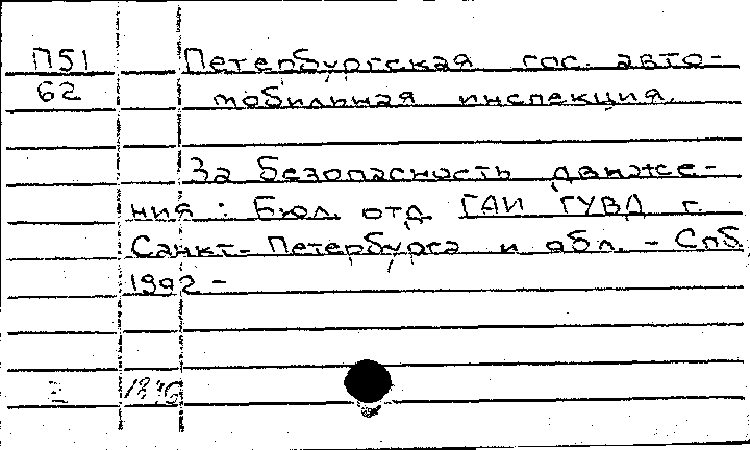 П51 Петербургская гос. авто-
62 мобильная инспекция.
За безопасность движе-
ния : Бюл. отд. ГАИ ГУВД г.
Санкт-Петербурга и обл. - Спб
1992 -